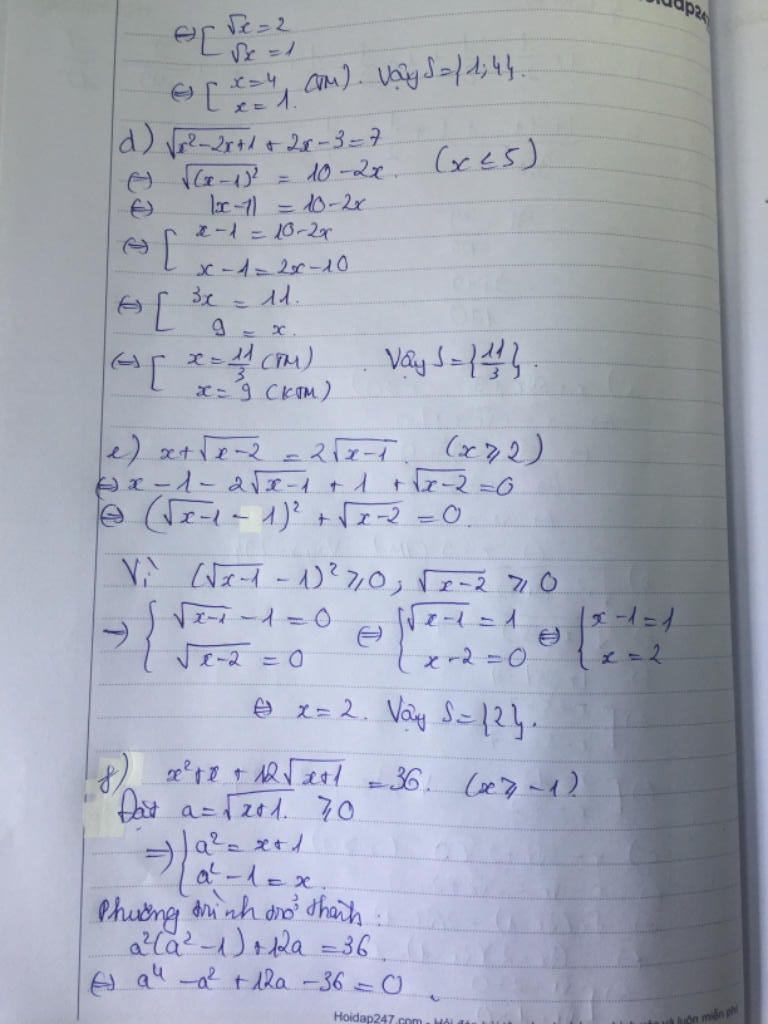 oidap247
⇔ [ √x = 2
√x = 1
⇔ [ x = 4 (TM). Vậy S = {1; 4}.
x = 1.
d) √(x² - 2x + 1) + 2x - 3 = 7
⇔ √((x - 1)²) = 10 - 2x. (x ≤ 5)
⇔ |x - 1| = 10 - 2x
⇔ [ x - 1 = 10 - 2x
x - 1 = 2x - 10
⇔ [ 3x = 11.
9 = x.
⇔ [ x = 11/3 (TM) . Vậy S = {11/3}.
x = 9 (KTM)
e) x + √(x - 2) = 2√(x - 1). (x ⩾ 2)
⇔ x - 1 - 2√(x - 1) + 1 + √(x - 2) = 0
⇔ (√(x - 1) - 1)² + √(x - 2) = 0.
Vì (√(x - 1) - 1)² ⩾ 0, √(x - 2) ⩾ 0
→ { √(x - 1) - 1 = 0 ⇔ { √(x - 1) = 1 ⇔ { x - 1 = 1
√(x - 2) = 0 x - 2 = 0 x = 2
⇔ x = 2. Vậy S = {2}.
f) x² + x + 12√(x + 1) = 36. (x ⩾ -1)
Đặt a = √(x + 1). ⩾ 0
⇒ { a² = x + 1
a² - 1 = x.
Phương trình trở thành:
a²(a² - 1) + 12a = 36
⇔ a⁴ - a² + 12a - 36 = 0
Hoidap247.com - Hỏi đáp và luôn miễn phí